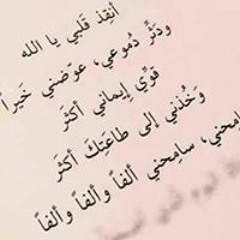 أَنقِذ قَلبي يا الله
ودَثِّر دُموعي، عوّضني خَيراً
قَوّي إيماني أكثَر
وَخُذني إلى طاعَتِكَ أكثَر
سامِحني ألفاً وألفاً وألفاً